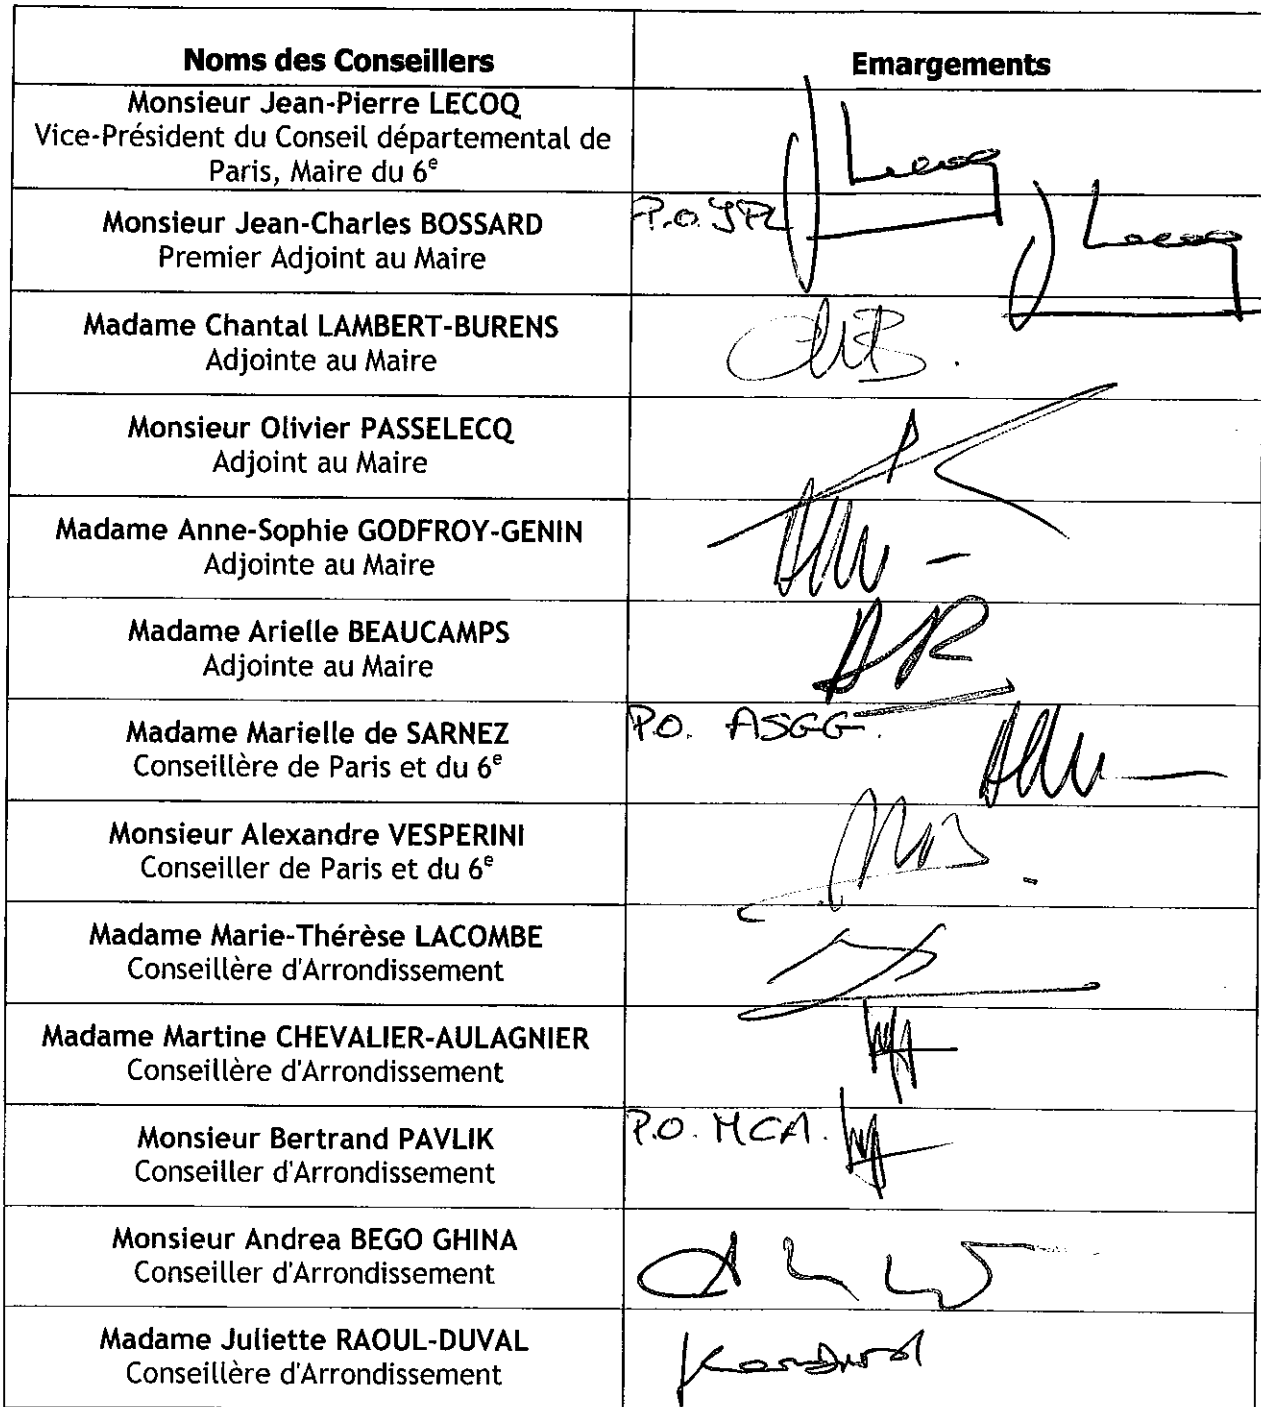 Noms des Conseillers
Emargements
Monsieur Jean-Pierre LECOQ
Vice-Président du Conseil départemental de
Paris, Maire du 6e
Lecoq
Monsieur Jean-Charles BOSSARD
Premier Adjoint au Maire
P.O. JPL
Lecoq
Madame Chantal LAMBERT-BURENS
Adjointe au Maire
Monsieur Olivier PASSELECQ
Adjoint au Maire
Madame Anne-Sophie GODFROY-GENIN
Adjointe au Maire
Madame Arielle BEAUCAMPS
Adjointe au Maire
Madame Marielle de SARNEZ
Conseillère de Paris et du 6e
P.O. ASGG.
Monsieur Alexandre VESPERINI
Conseiller de Paris et du 6e
Madame Marie-Thérèse LACOMBE
Conseillère d'Arrondissement
Madame Martine CHEVALIER-AULAGNIER
Conseillère d'Arrondissement
Monsieur Bertrand PAVLIK
Conseiller d'Arrondissement
P.O. MCA.
Monsieur Andrea BEGO GHINA
Conseiller d'Arrondissement
Madame Juliette RAOUL-DUVAL
Conseillère d'Arrondissement